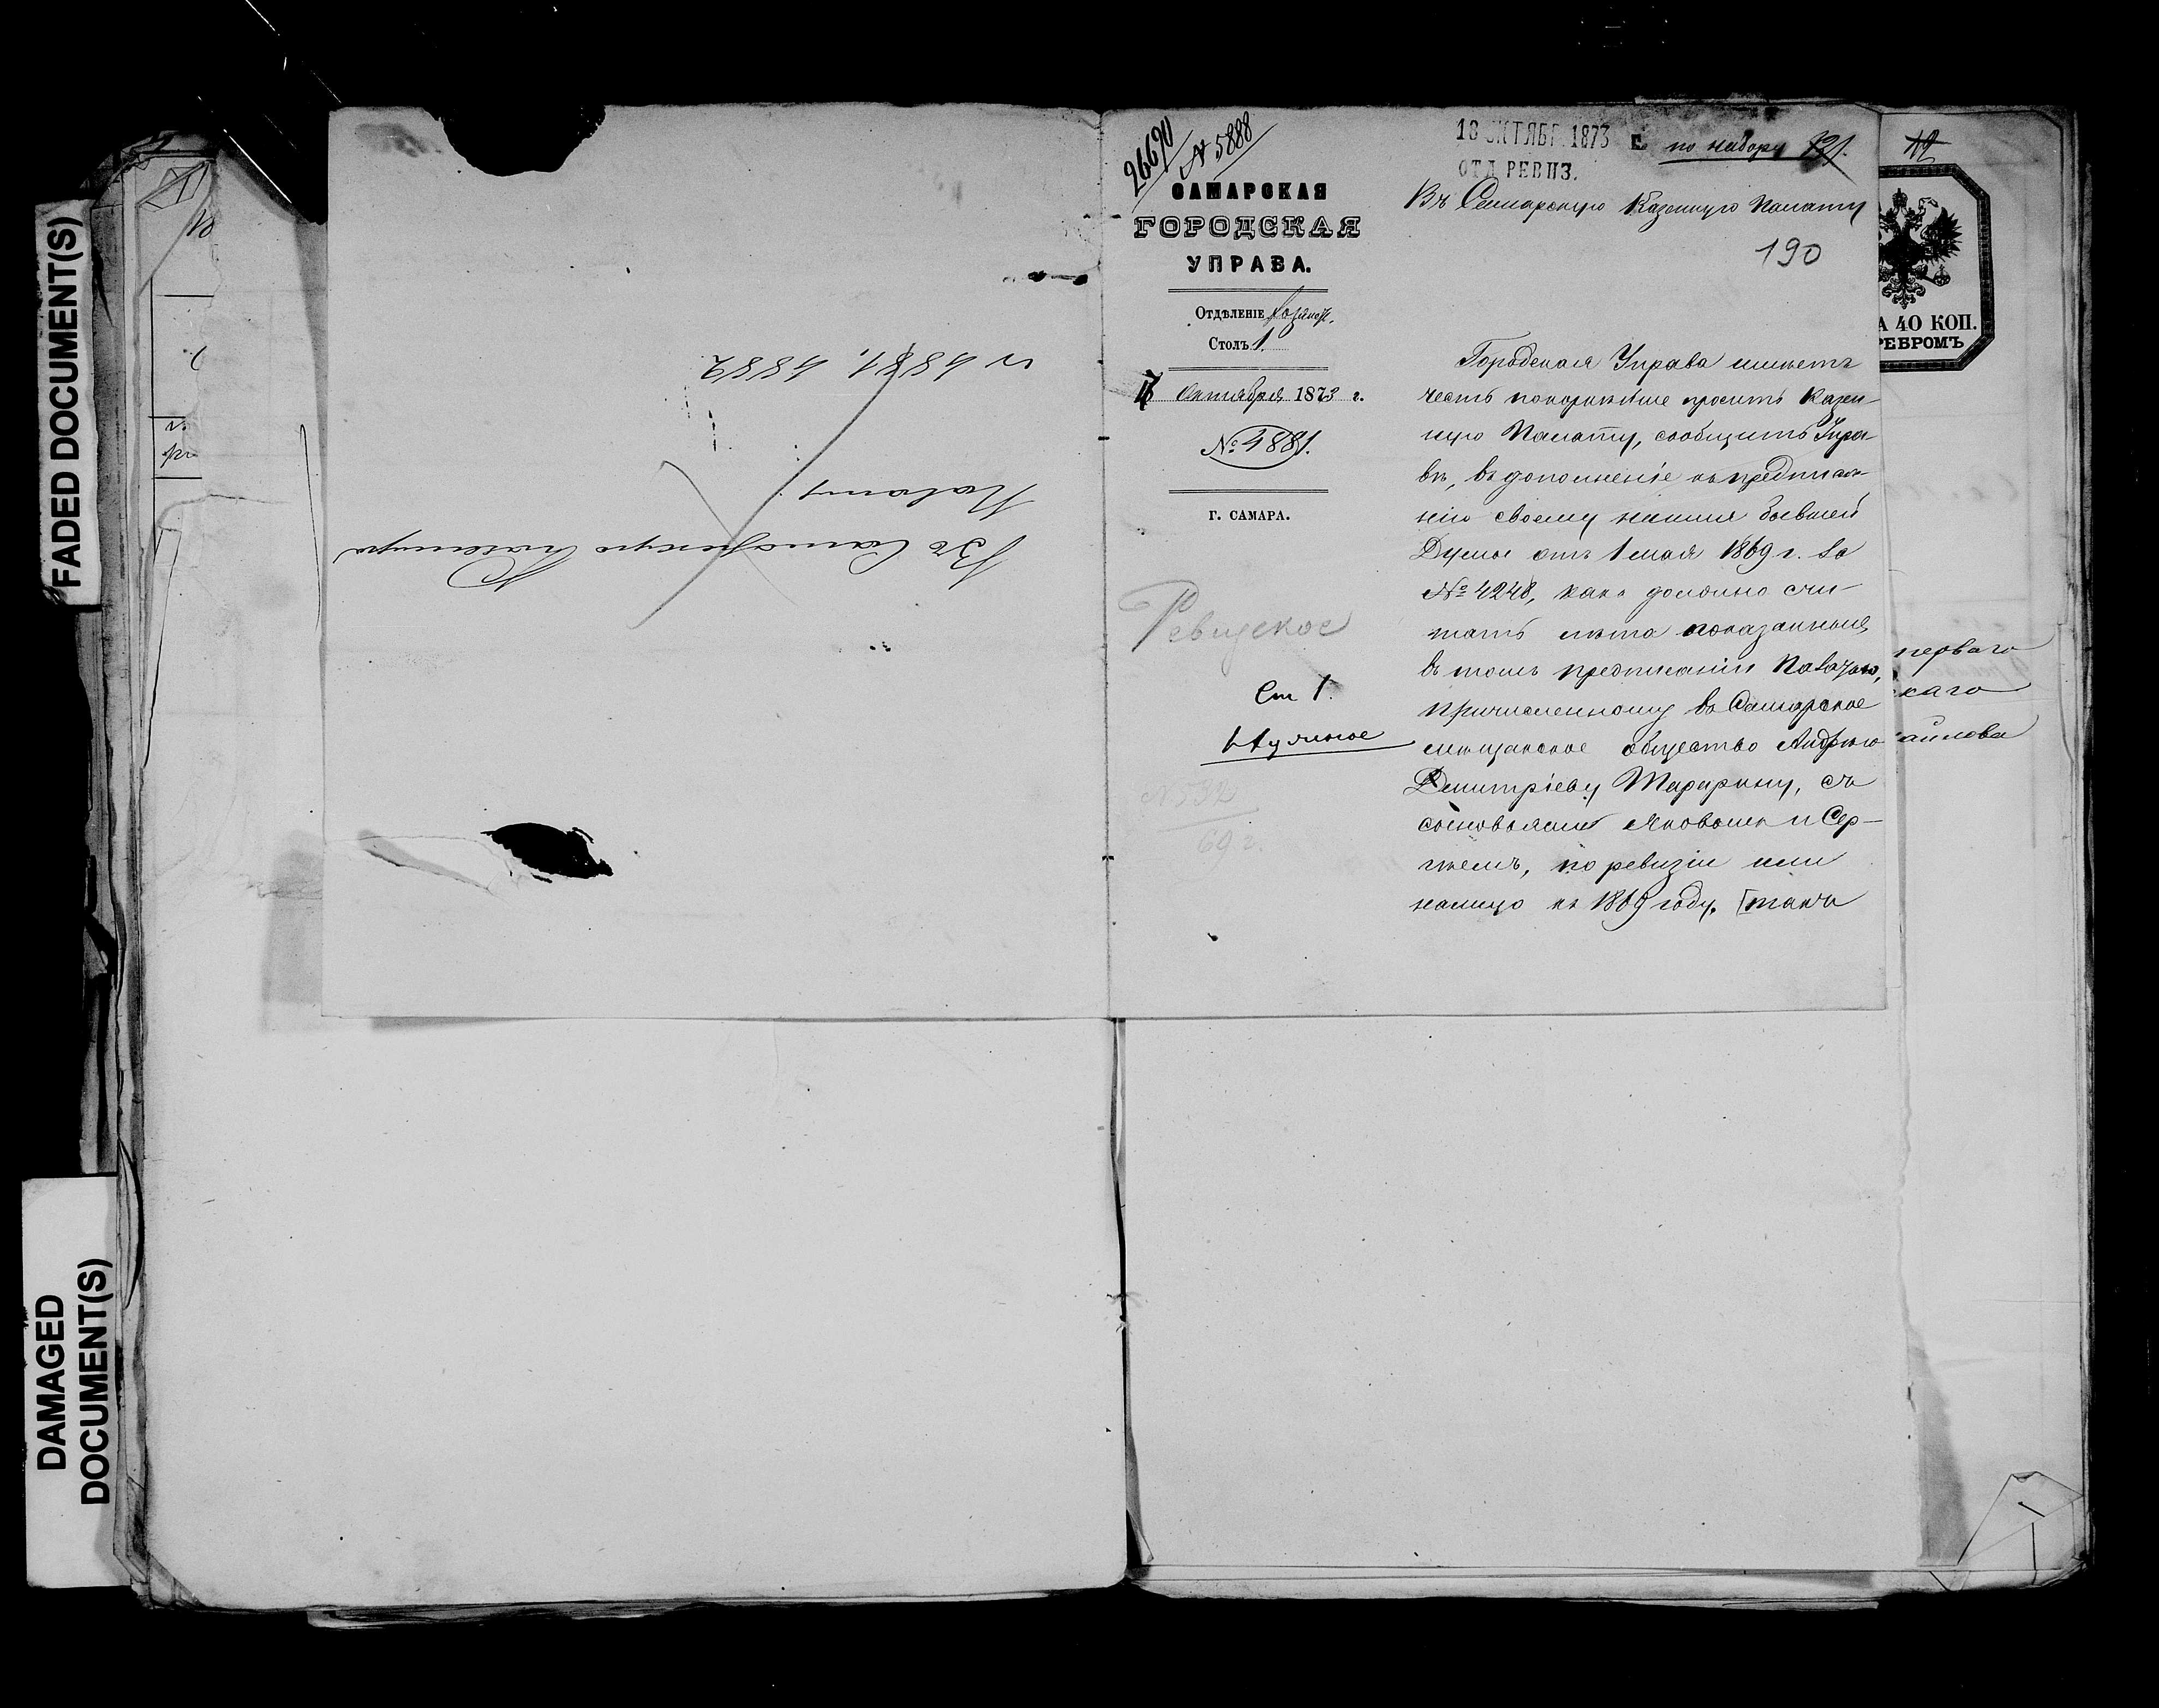 FADED DOCUMENT(S)
DAMAGED
DOCUMENT(S)
Въ Самарскую Казенную
Палату
н 4881. 4882
26690
№ 5888
САМАРСКАЯ
ГОРОДСКАЯ
УПРАВА.
Отдѣленіе
Столъ 1.
Октября 1873 г.
№ 4881.
Г. САМАРА.
Ревизское
Ст 1.
Нужное
№ 532
69 г.
18 ОКТЯБР. 1873 г.
ОТД. РЕВИЗ.
по набору
Въ Самарскую Казенную Палату
190
Городская Управа имѣетъ
честь покорнѣйше просить Казен-
ную Палату, сообщить Упра-
вѣ, въ дополненіе къ предписа-
нію своему на имя бывшей
Думы отъ 1 мая 1869 г. за
№ 4248, какъ должно счи-
тать лѣта показанныя
въ томъ предписаніи
причисленному въ Самарское
мѣщанское общество Андрею
Дмитріеву, съ
сыновьями Яковомъ и Сер-
гѣемъ, по ревизіи или
налицо къ 1869 году,
А 40 КОП.
РЕБРОМЪ
перваго
каго
аилова